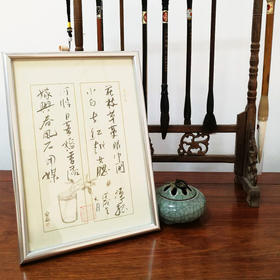 花枝草蔓眼中開
小白长红越女腮
可怜日暮嫣香落
嫁與春風不用媒